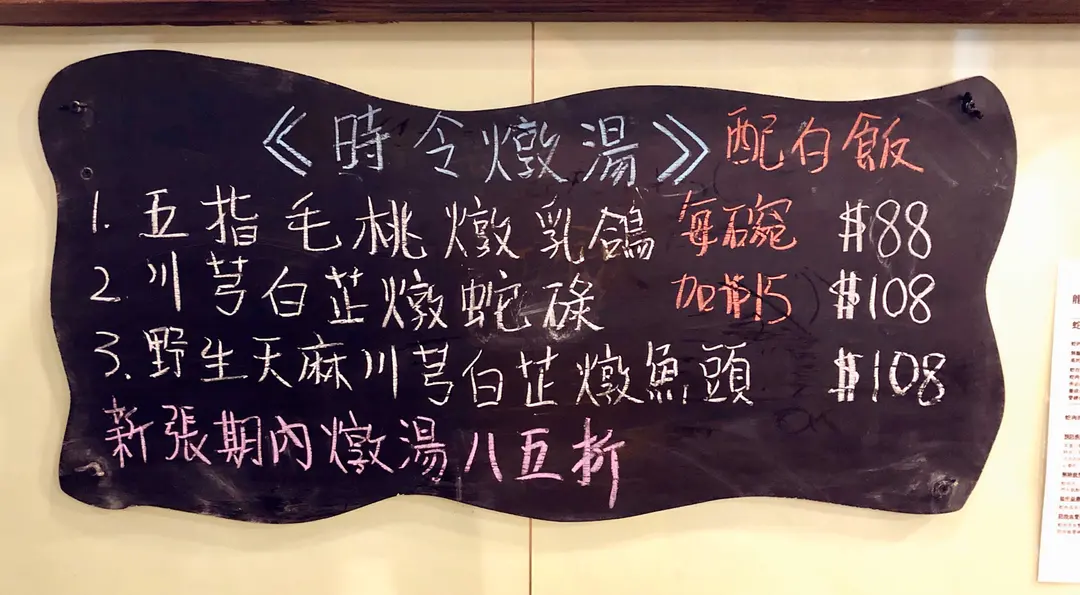 《時令燉湯》配白飯
1. 五指毛桃燉乳鴿 每碗 $88
2. 川芎白芷燉蛇碌 加$15 $108
3. 野生天麻川芎白芷燉魚頭 $108
新張期內燉湯八五折